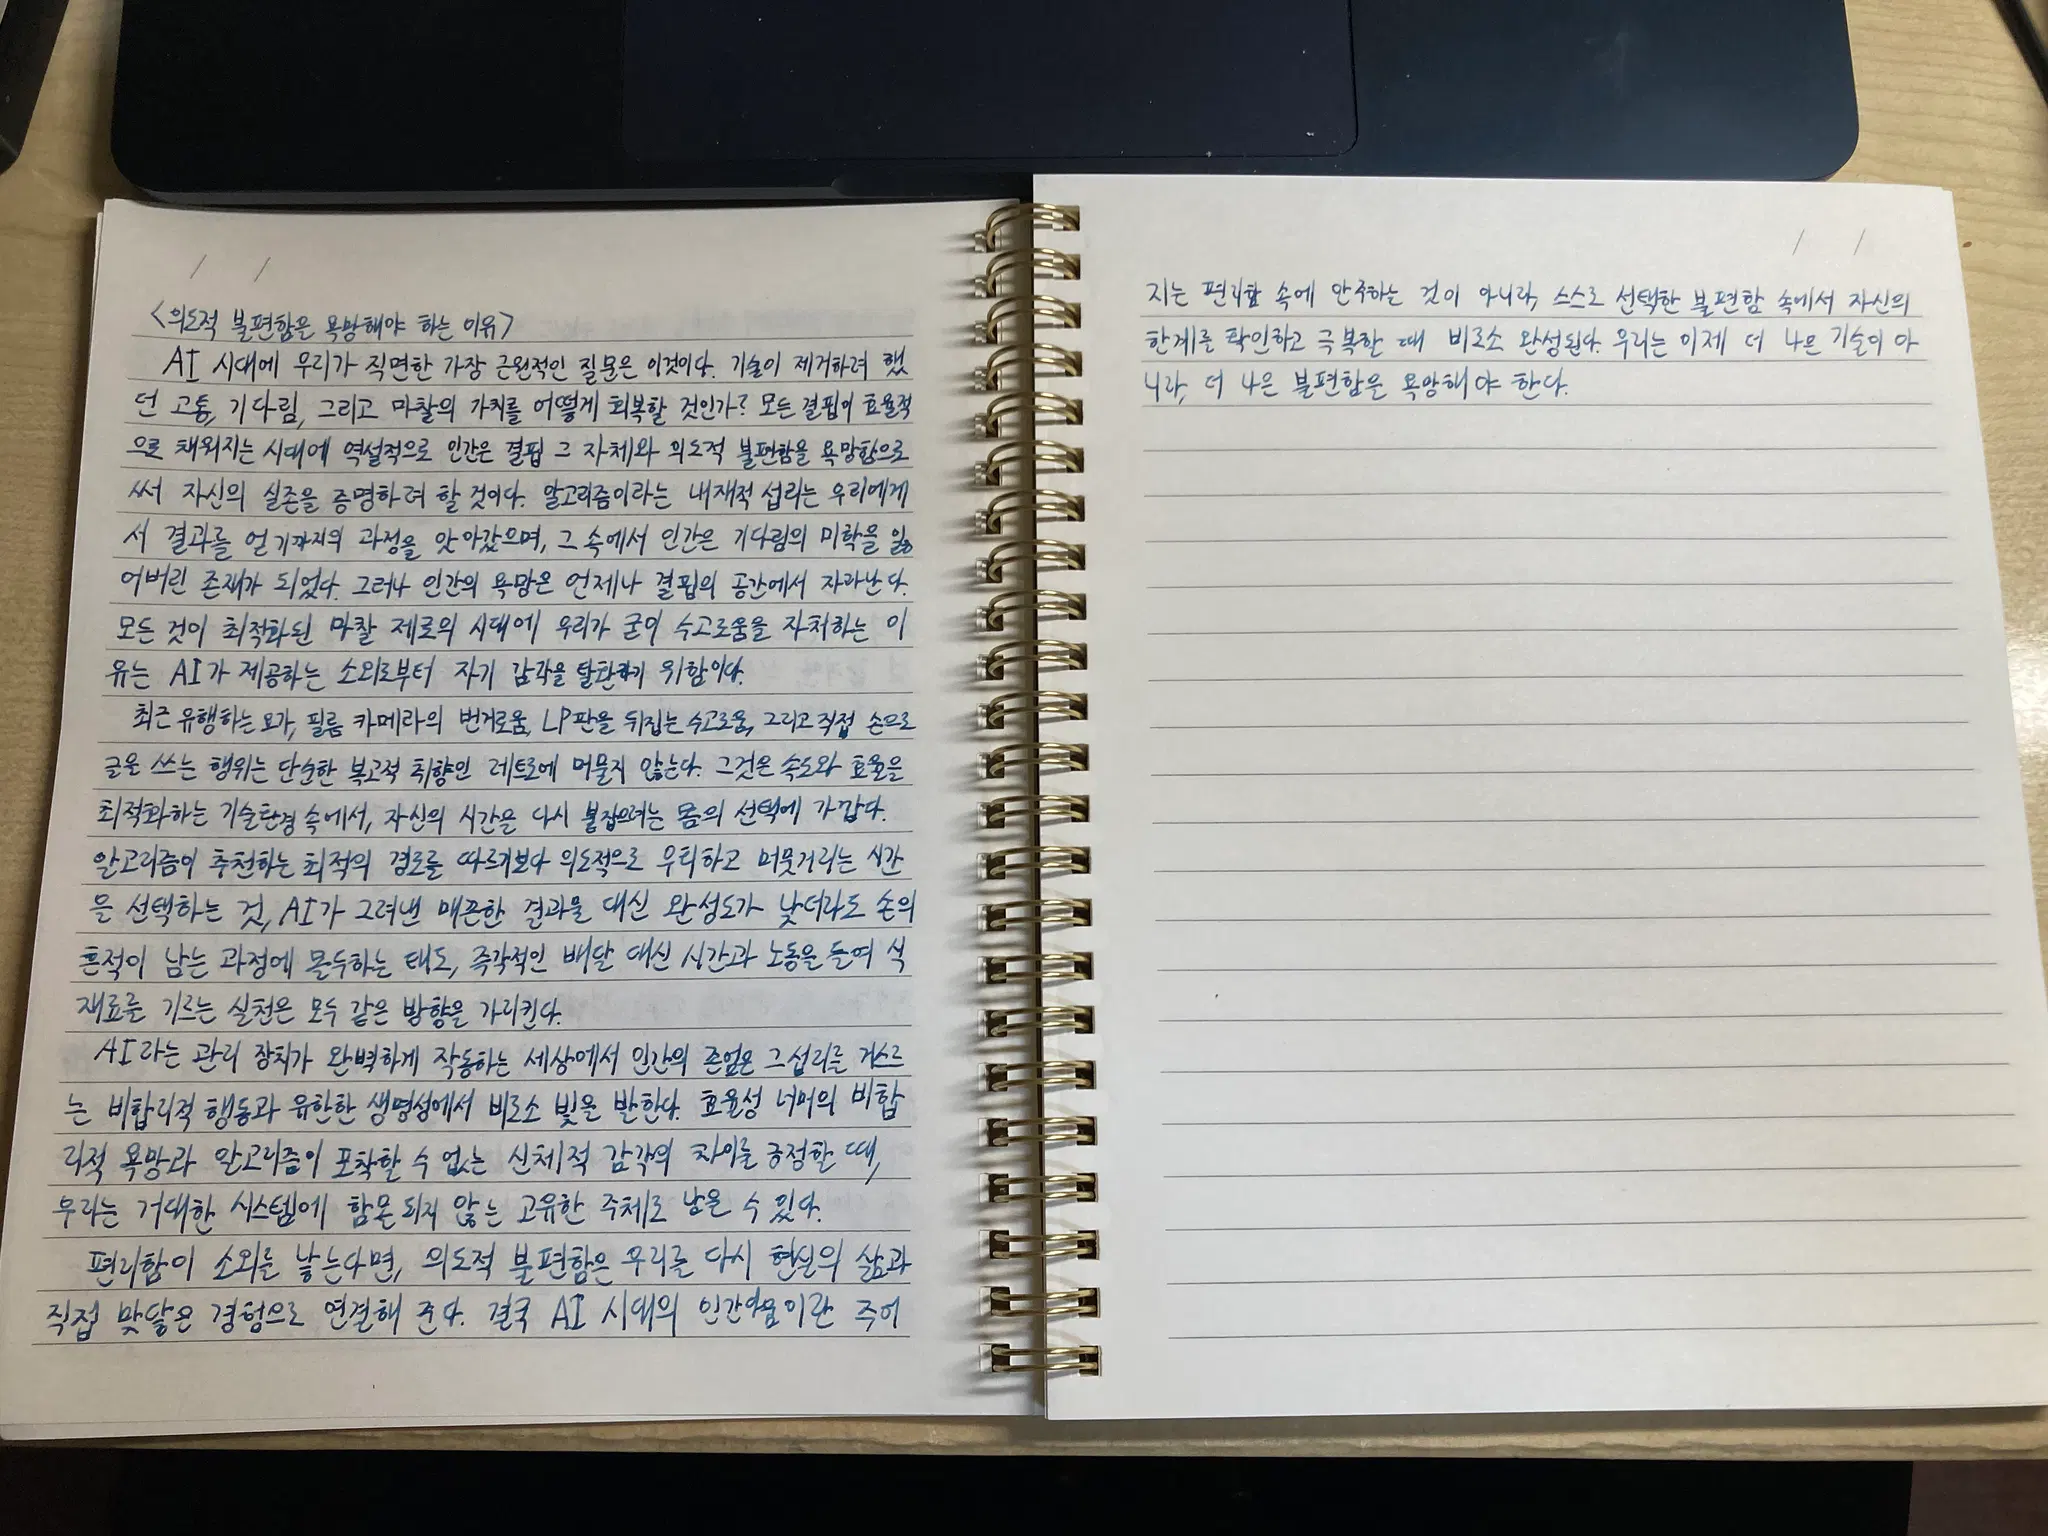 <의도적 불편함을 욕망해야 하는 이유>
AI 시대에 우리가 직면한 가장 근원적인 질문은 이것이다. 기술이 제거하려 했
던 고통, 기다림, 그리고 마찰의 가치를 어떻게 회복할 것인가? 모든 결핍이 효율적
으로 채워지는 시대에 역설적으로 인간은 결핍 그 자체와 의도적 불편함을 욕망함으로
써 자신의 실존을 증명하려 할 것이다. 알고리즘이라는 내재적 섭리는 우리에게
서 결과를 얻기까지의 과정을 앗아갔으며, 그 속에서 인간은 기다림의 미학을 잃
어버린 존재가 되었다. 그러나 인간의 욕망은 언제나 결핍의 공간에서 자라난다.
모든 것이 최적화된 마찰 제로의 시대에 우리가 굳이 수고로움을 자처하는 이
유는 AI가 제공하는 소외로부터 자기 감각을 탈환하기 위함이다.
최근 유행하는 요가, 필름 카메라의 번거로움, LP판을 뒤집는 수고로움, 그리고 직접 손으로
글을 쓰는 행위는 단순한 복고적 취향인 레트로에 머물지 않는다. 그것은 속도와 효율을
최적화하는 기술환경 속에서, 자신의 시간을 다시 붙잡으려는 몸의 선택에 가깝다.
알고리즘이 추천하는 최적의 경로를 따르기보다 의도적으로 우회하고 머뭇거리는 시간
을 선택하는 것, AI가 그려낸 매끈한 결과물 대신 완성도가 낮더라도 손의
흔적이 남는 과정에 몰두하는 태도, 즉각적인 배달 대신 시간과 노동을 들여 식
재료를 기르는 실천은 모두 같은 방향을 가리킨다.
AI라는 관리 장치가 완벽하게 작동하는 세상에서 인간의 존엄은 그 섭리를 거스르
는 비합리적 행동과 유한한 생명성에서 비로소 빛을 발한다. 효율성 너머의 비합
리적 욕망과 알고리즘이 포착할 수 없는 신체적 감각의 차이를 긍정할 때,
우리는 거대한 시스템에 함몰되지 않는 고유한 주체로 남을 수 있다.
편리함이 소외를 낳는다면, 의도적 불편함은 우리를 다시 현실의 삶과
직접 맞닿은 경험으로 연결해 준다. 결국 AI 시대의 인간다움이란 주어
지는 편리함 속에 안주하는 것이 아니라, 스스로 선택한 불편함 속에서 자신의
한계를 확인하고 극복할 때 비로소 완성된다. 우리는 이제 더 나은 기술이 아
니라, 더 나은 불편함을 욕망해야 한다.